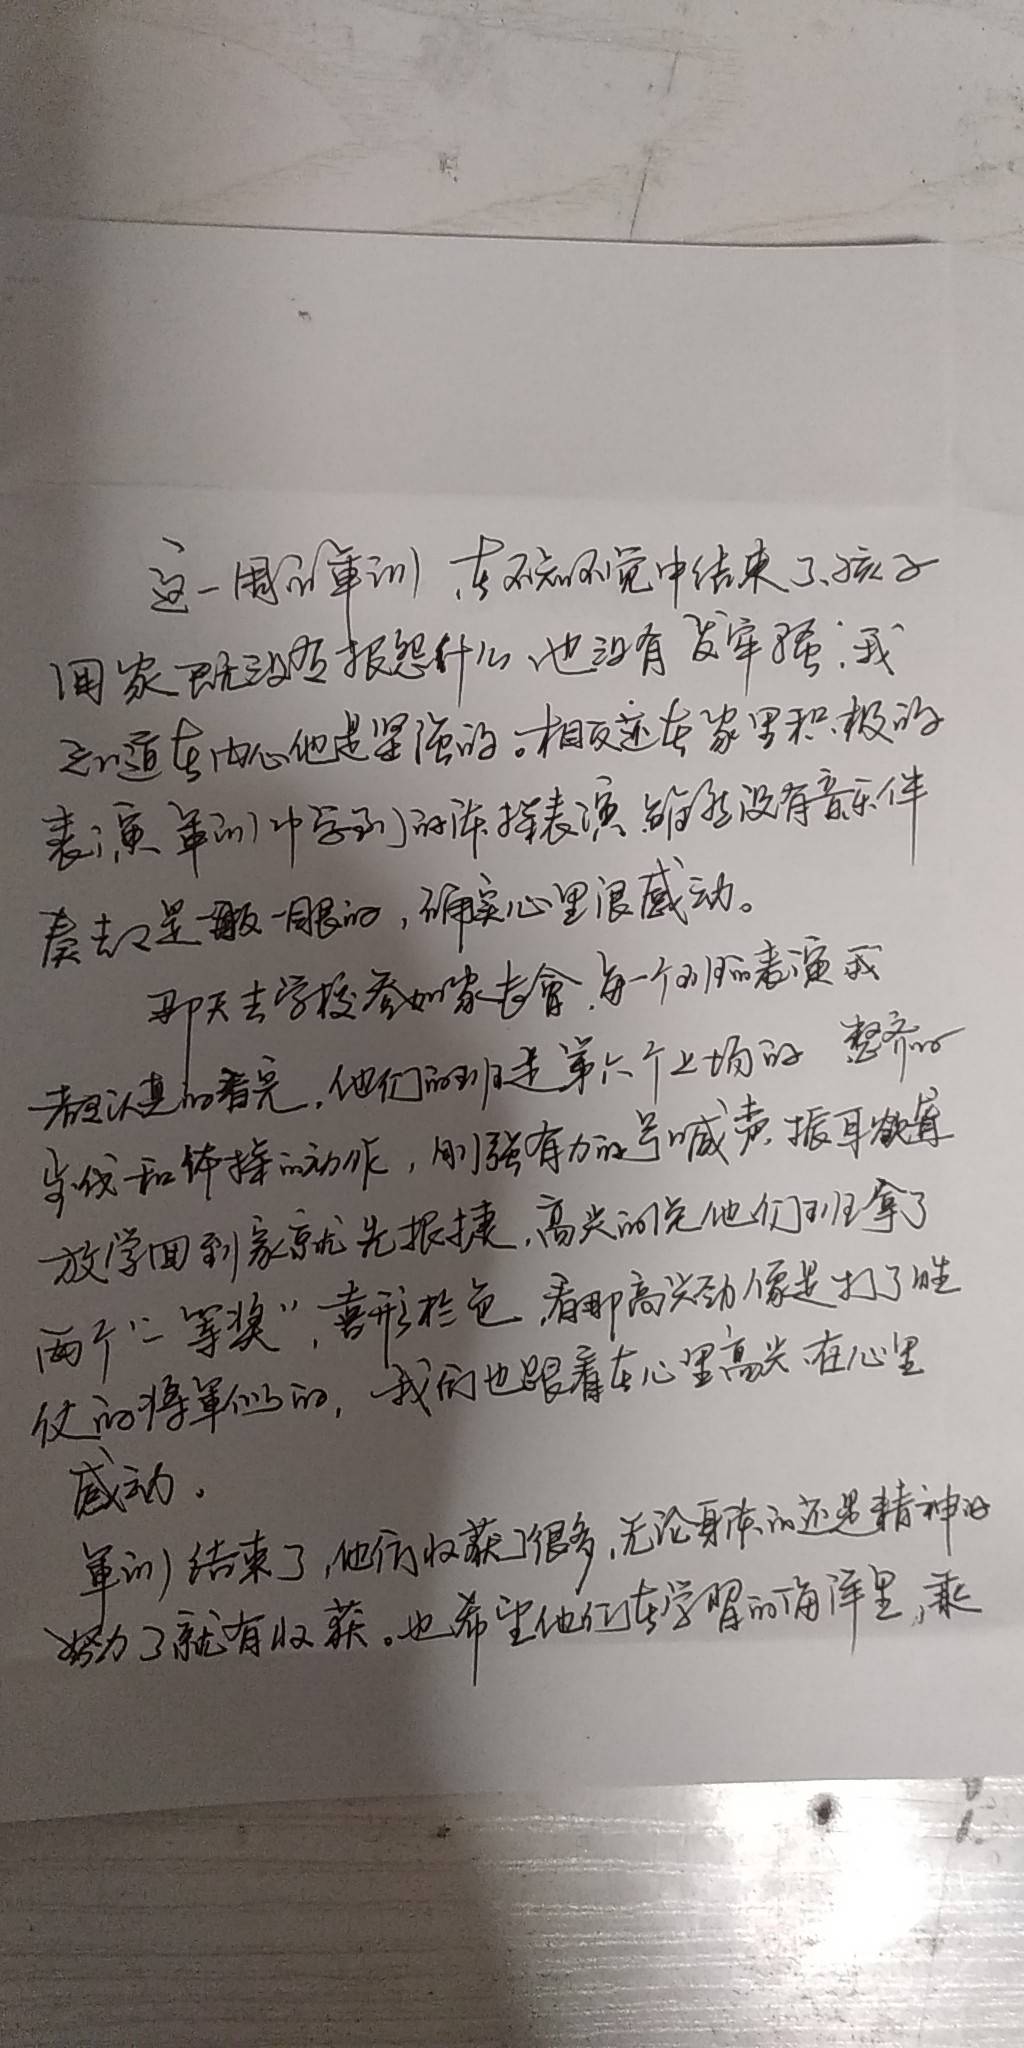 这一周的军训,在不知不觉中结束了,孩子
回家既没有报怨什么,也没有发牢骚,我
知道在内心他是坚强的。相反还在家里积极的
表演军训中学到的体操表演,虽然没有音乐伴
奏去是一板一眼的,确实心里很感动。
那天去学校参加家长會,每一个班的表演我
都认真的看完,他们的班是第六个上场的 整齐的
步伐和体操的动作,刚强有力的号喊声,振耳欲聋
放学回到家就先报捷,高兴的说他们班拿了
两个“二等奖”,喜形於色,看那高兴劲像是打了胜
仗的将军似的,我们也跟着在心里高兴,在心里
感动。
军训结束了,他们收获了很多,无论身体的还是精神的
努力了就有收获。也希望他们在学習的海洋里,乘